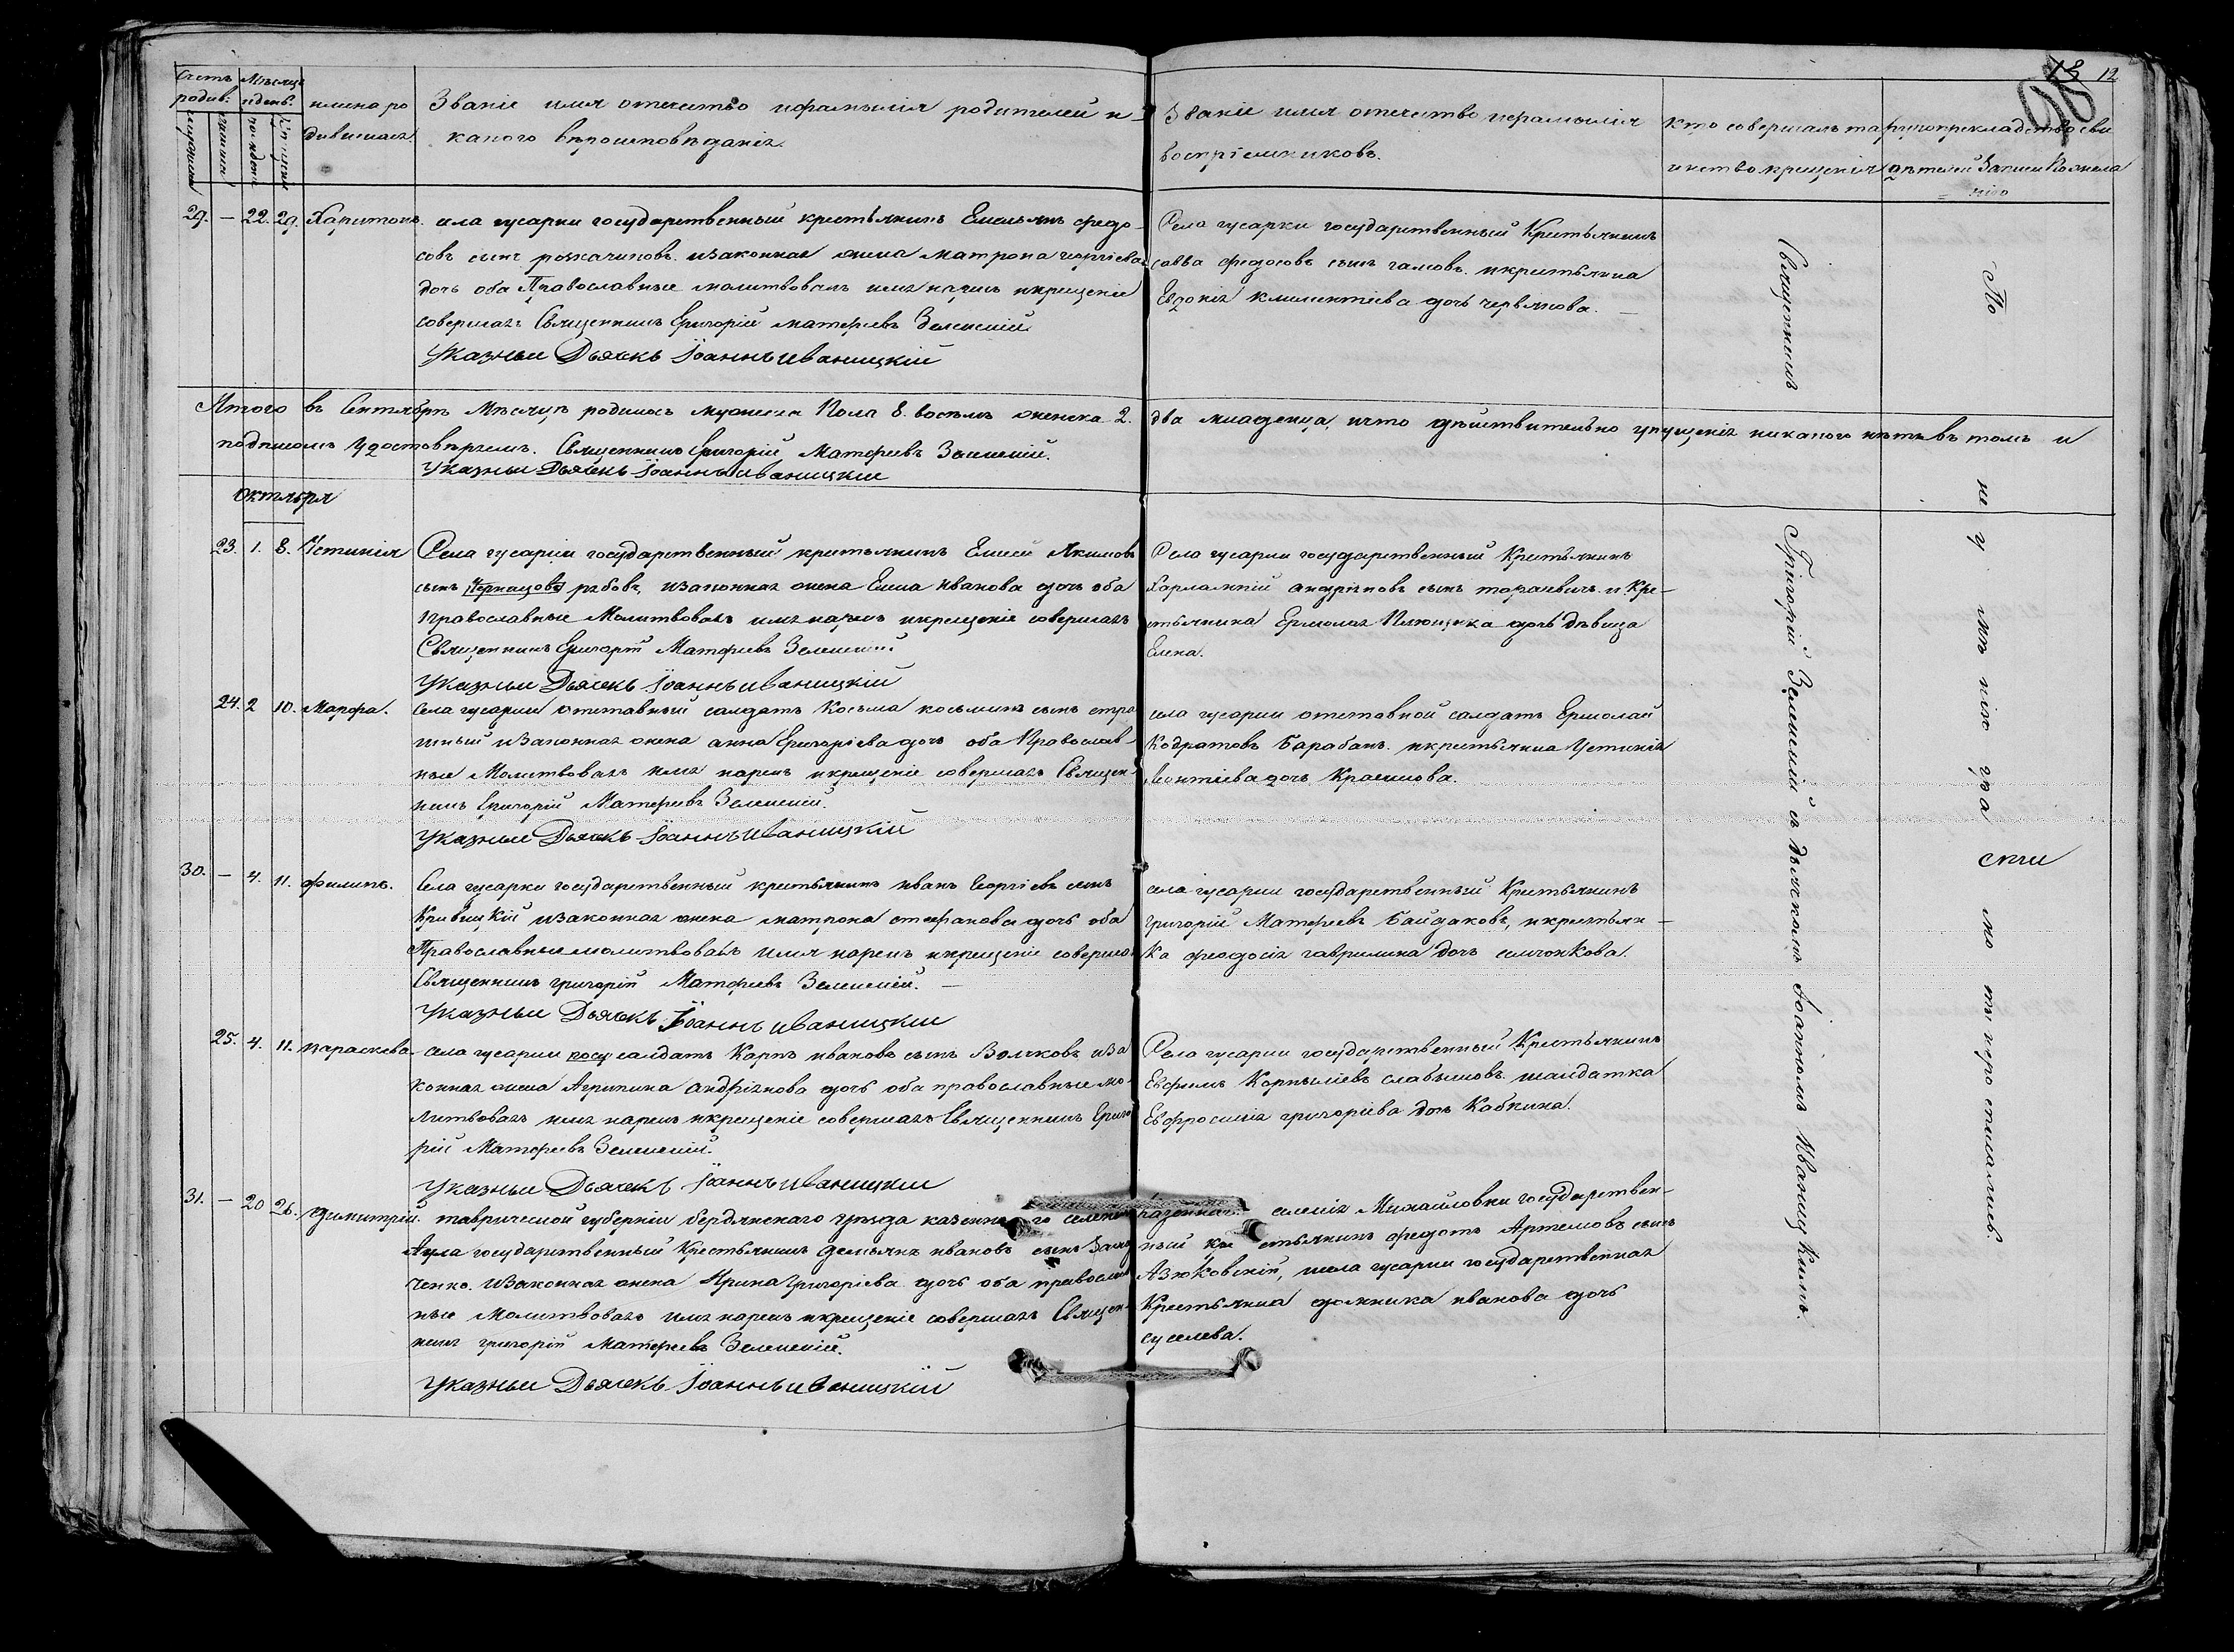 13 12
Счетъ родив:
Мѣсяцъ и день.
имена ро
дившихъ.
Званіе имя отечество и фамилія родителей и
какого вѣроисповѣданія.
Званіе имя отечество и фамилія
воспріемниковъ.
Кто совершалъ та
инство крещенія
рукоприкладство сви
дѣтелей Записи По жела
нію
29. — 22. 29. Харитонъ. села гусарки государственный крестьянинъ Емельянъ федо
совъ сынъ изаконная жена матрона георгіева
дочь оба Православные молитвовалъ имя нарекъ икрещеніе
совершалъ Священникъ Григорій матфеевъ Зеленскій
Указный Дьячекъ Іоаннъ Иваницкій
Села гусарки государственный Крестьянинъ
савва федосовъ сынъ гамовъ. икрестьянка
Евдокія климентіева дочь червякова.
Итого въ Сентябрѣ Мѣсяцѣ родилось мужеска Пола 8. восемь женска 2. два младенца, что дѣйствительно упущенія никакого нѣтъ въ томъ и
подписомъ Удостовѣряемъ. Священникъ Григорій Матфеевъ Зеленскій.
Указный Дьячекъ Іоаннъ Иваницкій
Октября
23. 1. 8. Устинія Села гусарки государственный крестьянинъ Елисей Якимовъ
сынъ рябовъ, изаконная жена Иванова дочь оба
Православные Молитвовалъ имя нарекъ икрещеніе совершалъ
Священникъ Григорій Матфеевъ Зеленскій.
Указный Дьячекъ Іоаннъ Иваницкій
Села гусарки государственный Крестьянинъ
Харлампій андріяновъ сынъ и Кре
стьянина Ермолая дочь дѣвица
Елена.
24. 2 10. Марфа. Села гусарки отставный салдатъ Косьма косьминъ сынъ
изаконная жена анна Григоріева дочь оба Православ
ные Молитвовалъ имя нарекъ икрещеніе совершалъ Священ
никъ Григорій Матфеевъ Зеленскій.
Указный Дьячекъ Іоаннъ Иваницкій
села гусарки отставной салдатъ Ермолай
Кодратовъ Барабанъ. икрестьянка Устинія
Леонтіева дочь
30. — 4. 11. филипъ. Села гусарки государственный крестьянинъ иванъ Георгіевъ сынъ
Кривицкій изаконная жена матрона стефанова дочь оба
Православные молитвовалъ имя нарекъ икрещеніе совершалъ
Священникъ григорій Матфеевъ Зеленскій.
Указный Дьячекъ Іоаннъ Иваницкій
села гусарки государственный Крестьянинъ
григорій Матфеевъ Байдаковъ, икрестьян
ка феодосія гаврилина дочь
25. 4. 11. параскева. села гусарки салдатъ Карпъ ивановъ сынъ Волковъ иза
конная жена Агрипина андріянова дочь оба православные мо
литвовалъ имя нарекъ икрещеніе совершалъ Священникъ Григо
рій Матфеевъ Зеленскій.
Указный Дьячекъ Іоаннъ Иваницкій
Села гусарки государственный Крестьянинъ
Ефимъ Корниліевъ исалдатка
Евфросинія григоріева дочь Кабкина.
31. — 20 26. димитрій. таврической губерніи бердянскаго уѣзда казеннаго селенія
государственный Крестьянинъ демьянъ ивановъ сынъ
ченко. изаконная жена Ирина Григоріева дочь оба православ
ные Молитвовалъ имя нарекъ икрещеніе совершалъ Священ
никъ григорій Матфеевъ Зеленскій.
Указный Дьячекъ Іоаннъ Иваницкій
казеннаго селенія Михайловки государствен
ный крестьянинъ федотъ Артемовъ сынъ
Азюковскій, исела гусарки государственная
Крестьянка домника иванова дочь
суслева.
Священникъ Григорій Зеленскій съ дьячкомъ Іоанномъ Иваницкимъ.